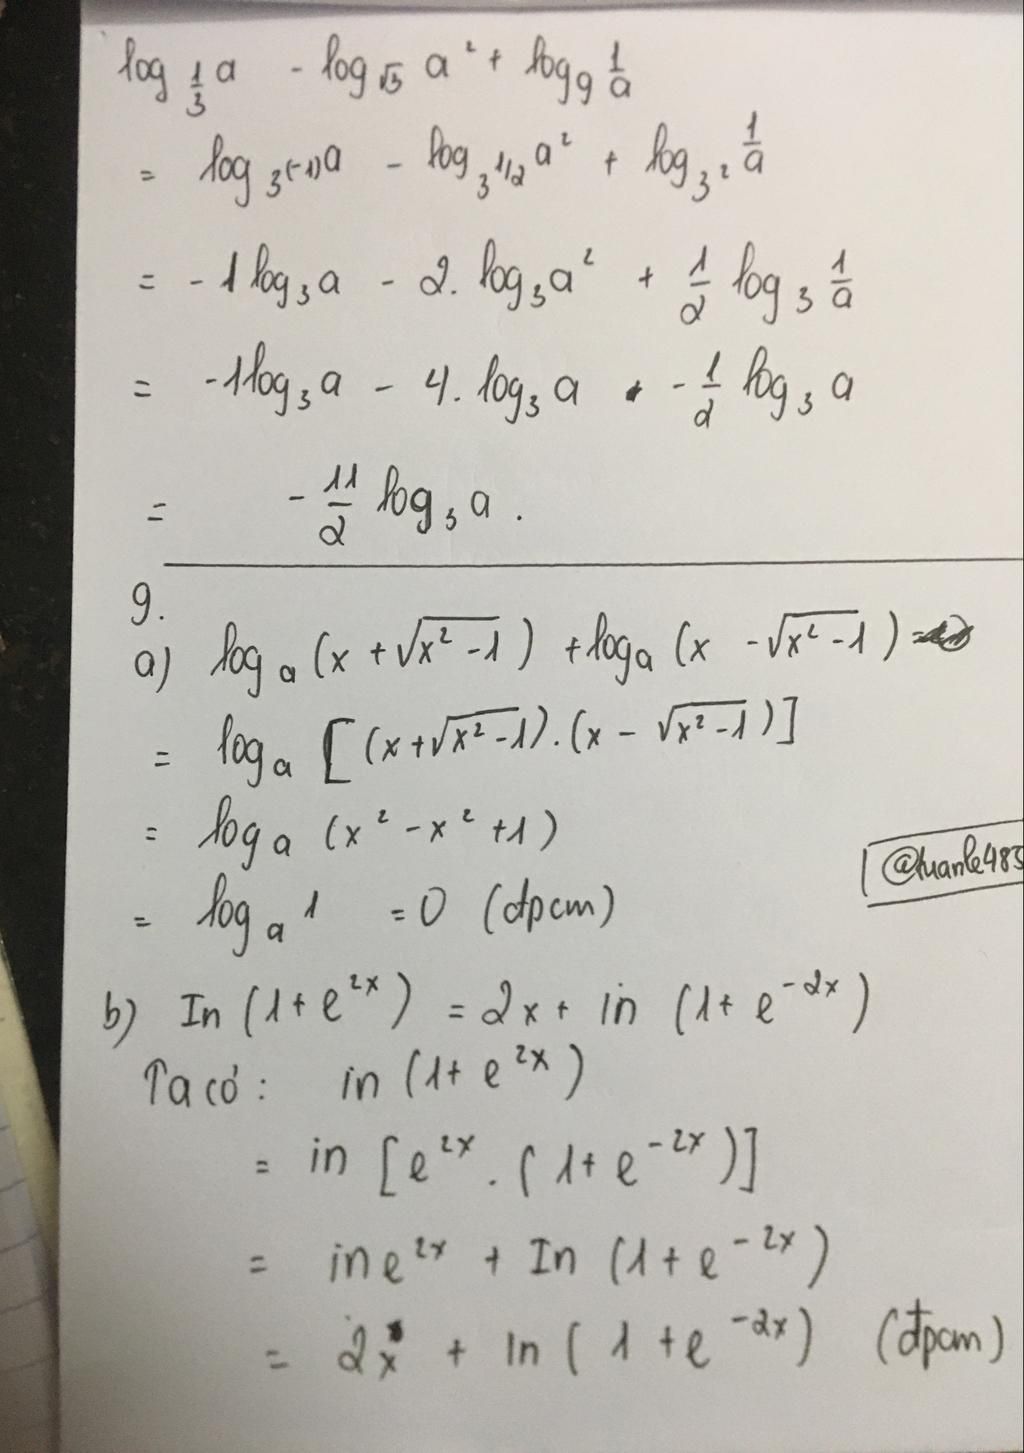 log_{1/3} a - log_{√3} a² + log_9 1/a
= log_{3^(-1)} a - log_{3^{1/2}} a² + log_{3²} 1/a
= -1 log_3 a - 2. log_3 a² + 1/2 log_3 1/a
= -1 log_3 a - 4. log_3 a - 1/2 log_3 a
= - 11/2 log_3 a .
9.
a) log_a (x + √(x² - 1)) + log_a (x - √(x² - 1))
= log_a [(x + √(x² - 1)).(x - √(x² - 1))]
= log_a (x² - x² + 1)
@tuanle483
= log_a 1 = 0 (đpcm)
b) In (1 + e^{2x}) = 2x + in (1 + e^{-2x})
Ta có: in (1 + e^{2x})
= in [e^{2x} . (1 + e^{-2x})]
= in e^{2x} + In (1 + e^{-2x})
= 2x + ln (1 + e^{-2x}) (đpcm)